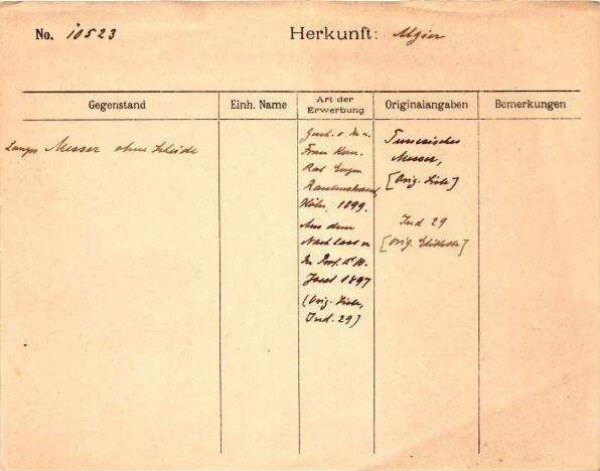 No. 10523
Herkunft: Algier
Gegenstand
Einh. Name
Art der Erwerbung
Originalangaben
Bemerkungen
Langes Messer ohne Scheide
Gesch. v.
Frau Kom.
Rat Eugen
Rautenstrauch
Köln, 1899.
Aus dem
Nachlass v.
Dr.
Joest 1897
(Orig. Liste,
Ind. 29]
Tunesisches
Messer,
[Orig. Liste]
Ind 29
[Orig. Etikette]